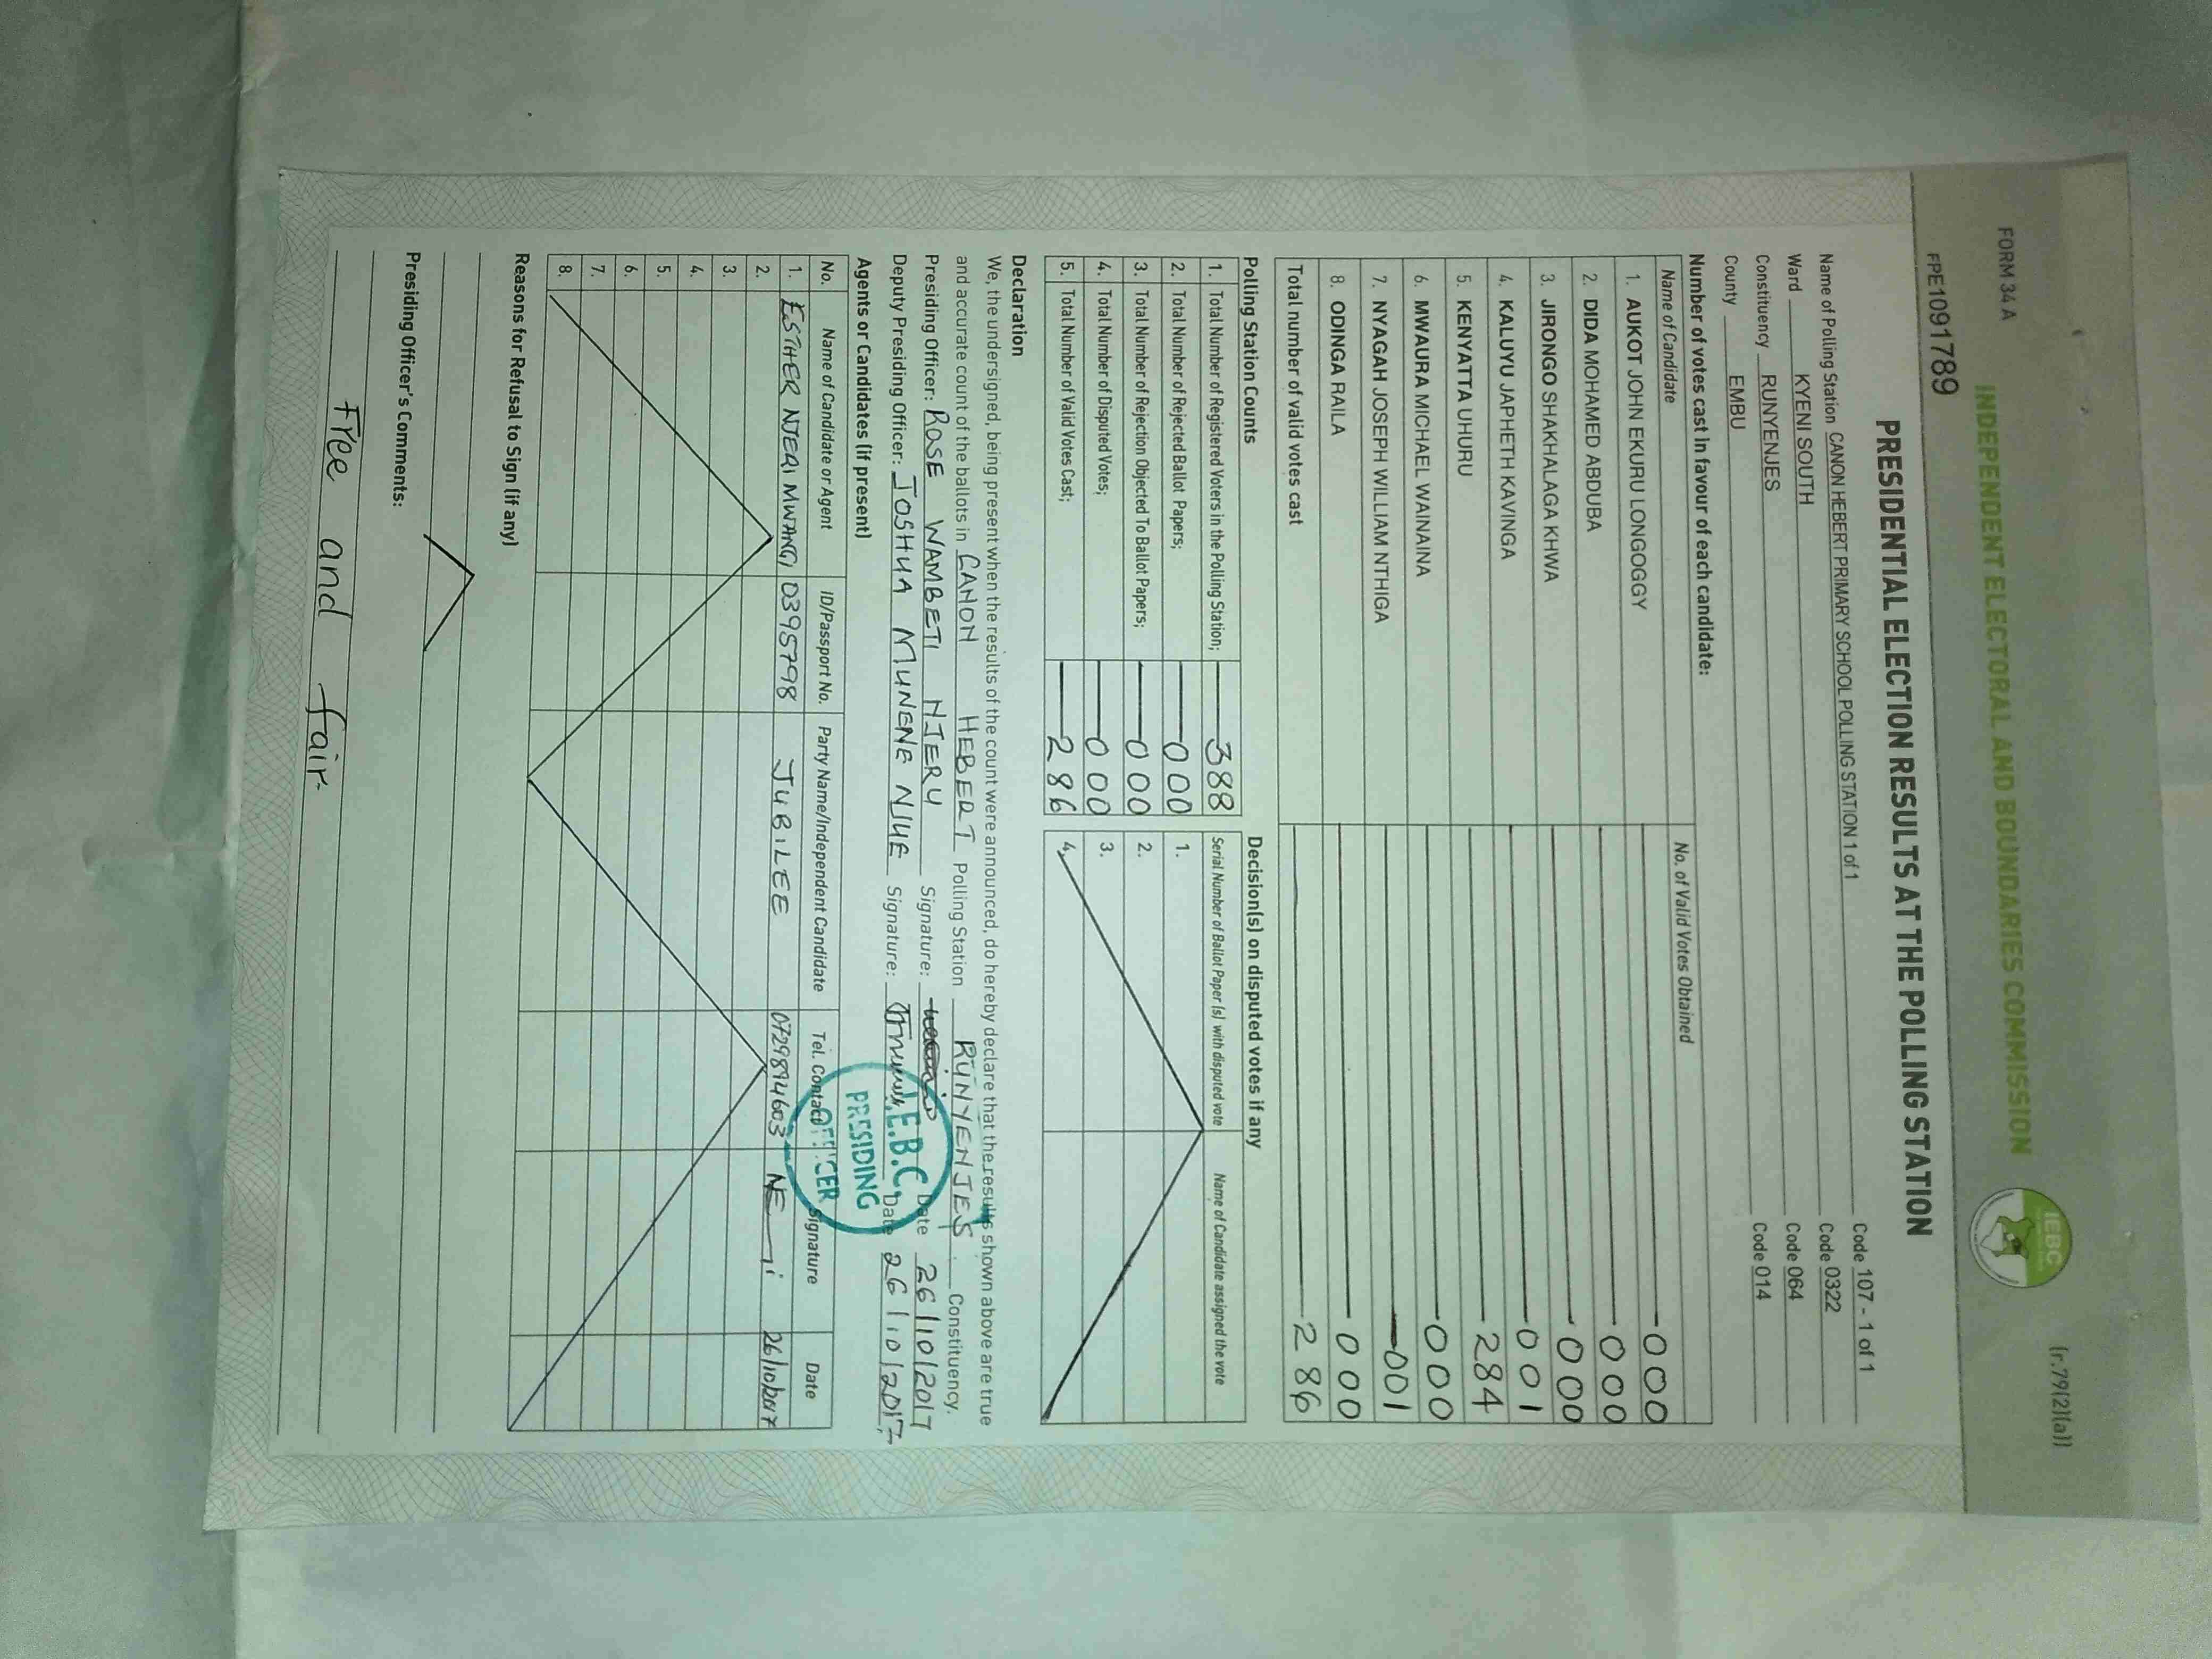 FORM 34 A
(r.79(2)(a))
INDEPENDENT ELECTORAL AND BOUNDARIES COMMISSION
IEBC
FPE1091789
PRESIDENTIAL ELECTION RESULTS AT THE POLLING STATION
Code 107 - 1 of 1
Name of Polling Station CANON HEBERT PRIMARY SCHOOL POLLING STATION 1 of 1 Code 0322
Ward KYENI SOUTH Code 064
Constituency RUNYENJES Code 014
County EMBU
Number of votes cast in favour of each candidate:
Name of Candidate No. of Valid Votes Obtained
1. AUKOT JOHN EKURU LONGOGGY 000
2. DIDA MOHAMED ABDUBA 000
3. JIRONGO SHAKHALAGA KHWA 000
4. KALUYU JAPHETH KAVINGA 001
5. KENYATTA UHURU 284
6. MWAURA MICHAEL WAINAINA 000
7. NYAGAH JOSEPH WILLIAM NTHIGA 001
8. ODINGA RAILA 000
Total number of valid votes cast 286
Polling Station Counts
1. Total Number of Registered Voters in the Polling Station; 388
2. Total Number of Rejected Ballot Papers; 000
3. Total Number of Rejection Objected To Ballot Papers; 000
4. Total Number of Disputed Votes; 000
5. Total Number of Valid Votes Cast; 286
Decision(s) on disputed votes if any
Serial Number of Ballot Paper (s) with disputed vote Name of Candidate assigned the vote
1.
2.
3.
4.
Declaration
We, the undersigned, being present when the results of the count were announced, do hereby declare that the results shown above are true
and accurate count of the ballots in CANON HEBERT Polling Station RUNYENJES Constituency.
Presiding Officer: ROSE WAMBETI NJERU Signature: Date 26/10/2017
Deputy Presiding Officer: JOSHUA MUNENE NJUE Signature: Date 26/10/2017
I.E.B.C.
PRESIDING
OFFICER
Agents or Candidates (if present)
No. Name of Candidate or Agent ID/Passport No. Party Name/Independent Candidate Tel. Contact Signature Date
1. ESTHER NJERI MWANGI 03957798 JUBILEE 0729894603 26/10/2017
2.
3.
4.
5.
6.
7.
8.
Reasons for Refusal to Sign (if any)
Presiding Officer's Comments:
Free and fair.